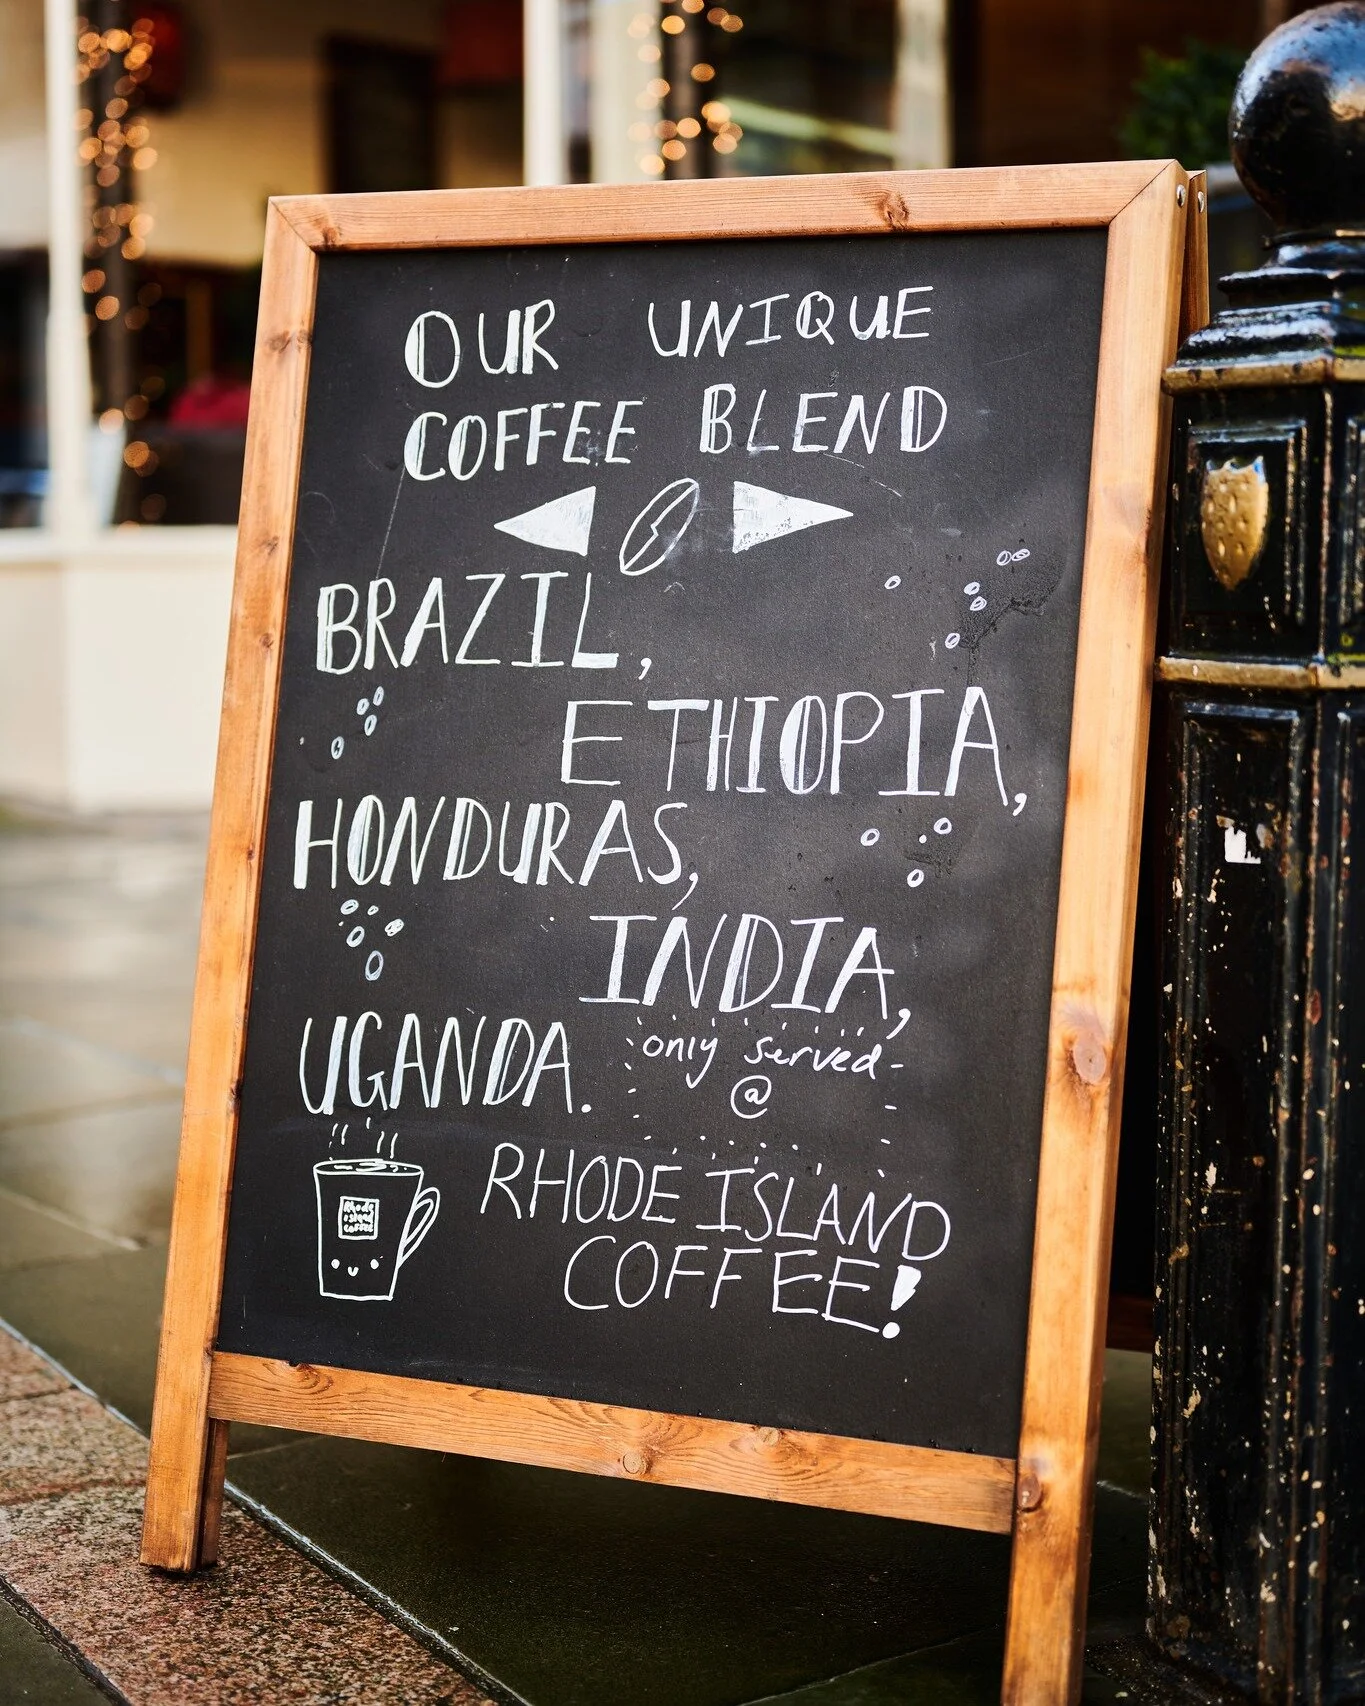 OUR UNIQUE
COFFEE BLEND
BRAZIL,
ETHIOPIA,
HONDURAS,
INDIA,
UGANDA.
only served
@
RHODE ISLAND
COFFEE!
Rhode
island
coffee